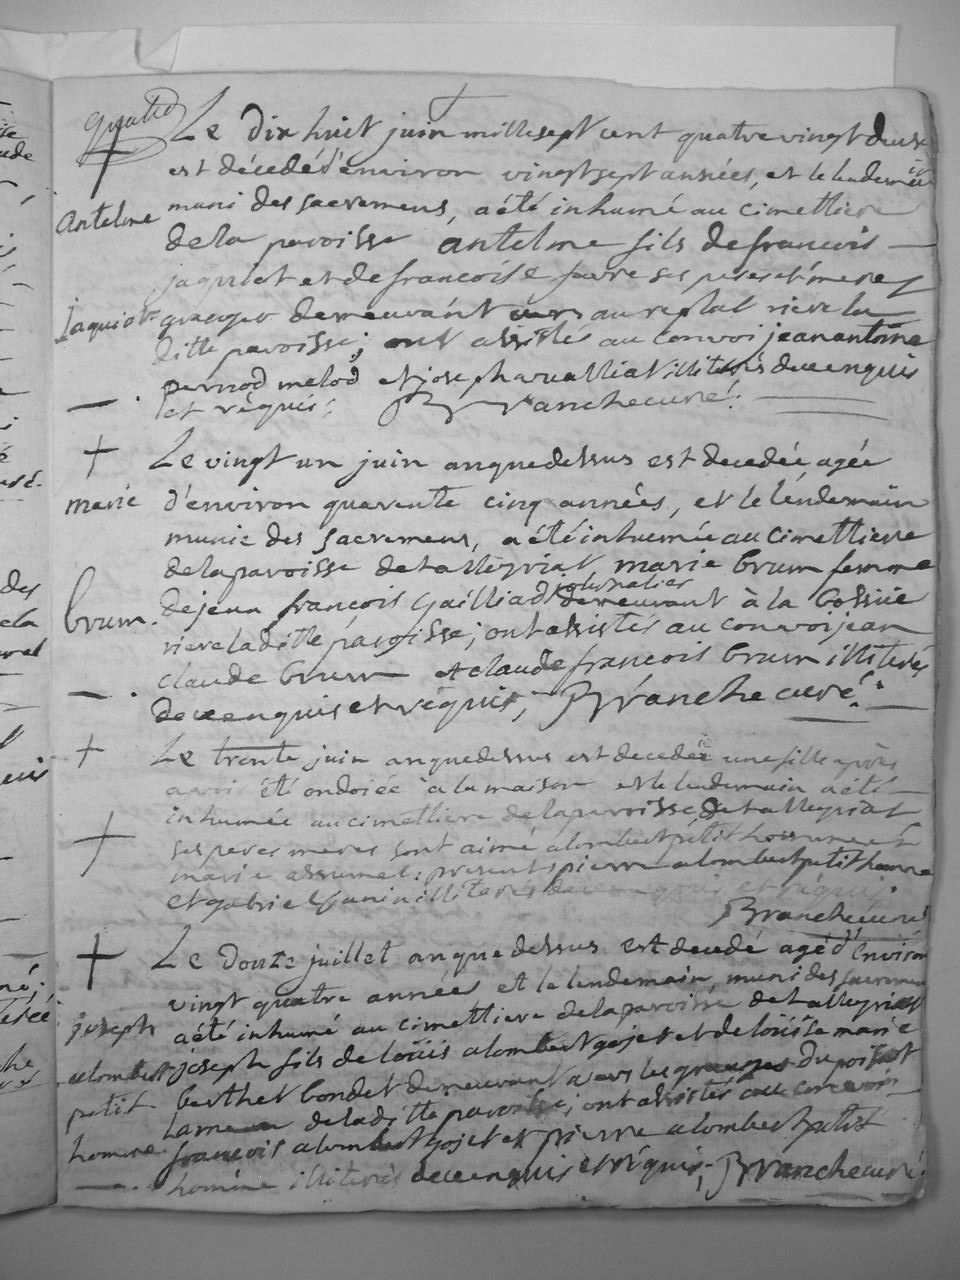 quatre
Le dix huit juin mille sept cent quatre vingt deux
est décedé d'environ vingt sept années, et le lendemain
muni des sacremens, a été inhumé au cimettiere
Antelme
de la paroisse antelme fils de francois
jaquiot et de francoise favre ses pere et mere
jaquiot
demeurant vers au replat riere la
ditte paroisse; ont assistés au convoi jean antoine
pernod melod et joseph illiterés de ce enquis
et réquis; Branche curé.
Le vingt un juin an que dessus est decedée agée
marie
d'environ quarente cinq années, et le lendemain
munie des sacremens, a été inhumée au cimettiere
de la paroisse de talleyriat, marie brun femme
journalier
de jean françois Gailliad demeurant à la Cossiue
brun.
riere la ditte paroisse; ont assistés au convoi jean
claude brun et claude francois brun illiterés
de ce enquis et réquis; Branche curé.
Le trente juin an que dessus est decedée une fille après
avoir été ondoiée à la maison et le lendemain a été
inhumée au cimettiere de la paroisse de talleyriat
ses peres meres sont aimé alombert petit homme et
marie assumel; present pierre alombert petit homme
et gabriel illiterés de ce enquis et réquis.
Branche curé
Le douze juillet an que dessus est decedé agé d'environ
vingt quatre années et le lendemain, muni des sacremens
joseph
a été inhumé au cimettiere de la paroisse de talleyriat
joseph fils de loüis alombert gojet et de loüise marie
alombert
berthet bondet demeurant vers les granges du poisat
petit
de la ditte paroisse; ont assistés au convoi
homme.
francois alombert gojet et pierre alombert petit
homme illiterés de ce enquis et réquis; Branche curé.